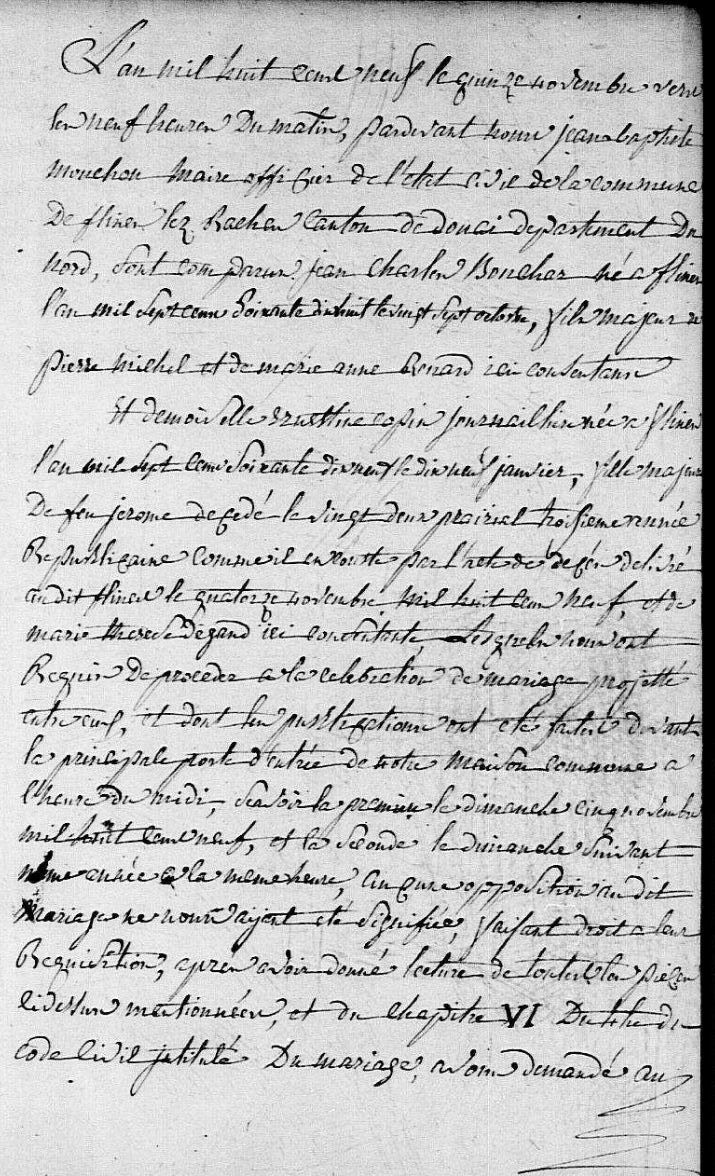 L'an mil huit cent neuf le quinze novembre vers
les neuf heures Du matin, pardevant nous jean baptiste
mouchon maire officier de l'état civil de la commune
De flines lez Raches Canton de douai departement Du
nord, sont comparus jean Charles Bouchez né a flines
l'an mil sept cens soixante dix huit le vingt sept octobre, fils majeur de
pierre michel et de marie anne Renard ici consentans
Et demoiselle copin née a flines
l'an mil sept cens soixante dix neuf le dix neuf janvier, fille majeure
De feu jerome decedé le vingt deux prairial troisieme année
Republicaine comme il en conste par l'acte de deces delivré
audit flines le quatorze novembre mil huit cens neuf, et de
marie therese Degand ici consentante, Lesquels nous ont
Requis De proceder a la celebration de mariage projetté
entre eux, et dont les publications ont été faites devant
la principale porte d'entrée de notre maison commune a
l'heure du midi, scavoir la premiere le dimanche cinq novembre
mil huit cent neuf, et la seconde le dimanche suivant
meme année a la meme heure, aucune opposition audit
mariage ne nous ayant eté signifiée, faisant droit a leur
Requisition, apres avoir donné lecture de toutes les pieces
cidessus mentionnées, et du chapitre VI Du titre du
code civil intitulé Du mariage, avons demandé au